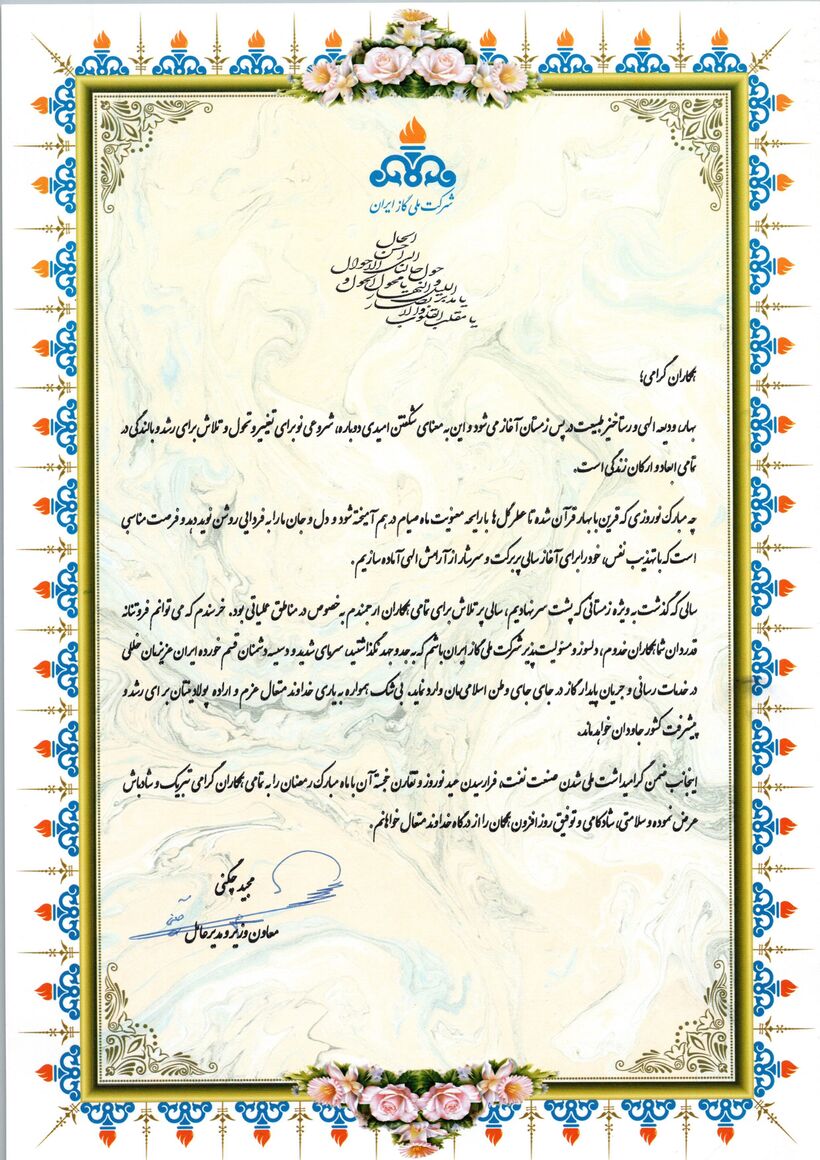 شرکت ملی گاز ایران
یا مقلب القلوب والابصار
یا مدبر اللیل والنهار
یا محول الحول و
الاحوال
حول حالنا
الی احسن
الحال
همکاران گرامی؛
بهار، ودیعه الهی و رستاخیز طبیعت در پس زمستان آغاز می شود و این به معنای شکفتن امیدی دوباره، شروعی نو برای تغییر و تحول و تلاش برای رشد و بالندگی در
تمامی ابعاد و ارکان زندگی است.
چه مبارک نوروزی که قرین با بهار قرآن شده تا عطر گل ها با رایحه معنویت ماه صیام در هم آمیخته شود و دل و جان ما را به فردایی روشن نوید دهد و فرصت مناسبی
است که با تهذیب نفس، خود را برای آغاز سالی پربرکت و سرشار از آرامش الهی آماده سازیم.
سالی که گذشت به ویژه زمستانی که پشت سر نهادیم، سالی پر تلاش برای تمامی همکاران ارجمندم به خصوص در مناطق عملیاتی بود. خرسندم که می توانم فروتنانه
قدردان شما همکاران خدوم، دلسوز و مسئولیت پذیر شرکت ملی گاز ایران باشم که به جد و جهد نگذاشتید، سرمای شدید و دسیسه دشمنان قسم خورده ایران عزیزمان خللی
در خدمات رسانی و جریان پایدار گاز در جای جای وطن اسلامی مان وارد نماید. بی شک همواره به یاری خداوند متعال عزم و اراده پولادینتان برای رشد و
پیشرفت کشور جاودان خواهد ماند.
اینجانب ضمن گرامیداشت ملی شدن صنعت نفت، فرارسیدن عید نوروز و تقارن خجسته آن با ماه مبارک رمضان را به تمامی همکاران گرامی تبریک و شادباش
عرض نموده و سلامتی، شادکامی و توفیق روز افزون همگان را از درگاه خداوند متعال خواهانم.
مجید چگنی
معاون وزیر و مدیرعامل